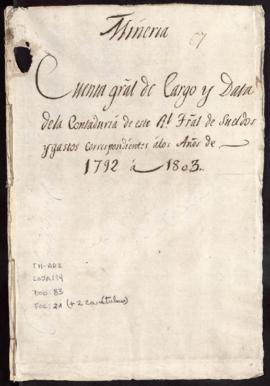 Mineria
67
Cuenta gr̃al de Cargo y Data
de la Contaduría de este Rl. Trãl de Sueldos
y gastos correspondientes á los Años de
1792 á 1803.
TM-AR2
CAJA: 174
DOC: 83
FOL: 21 (+2 carátulas)